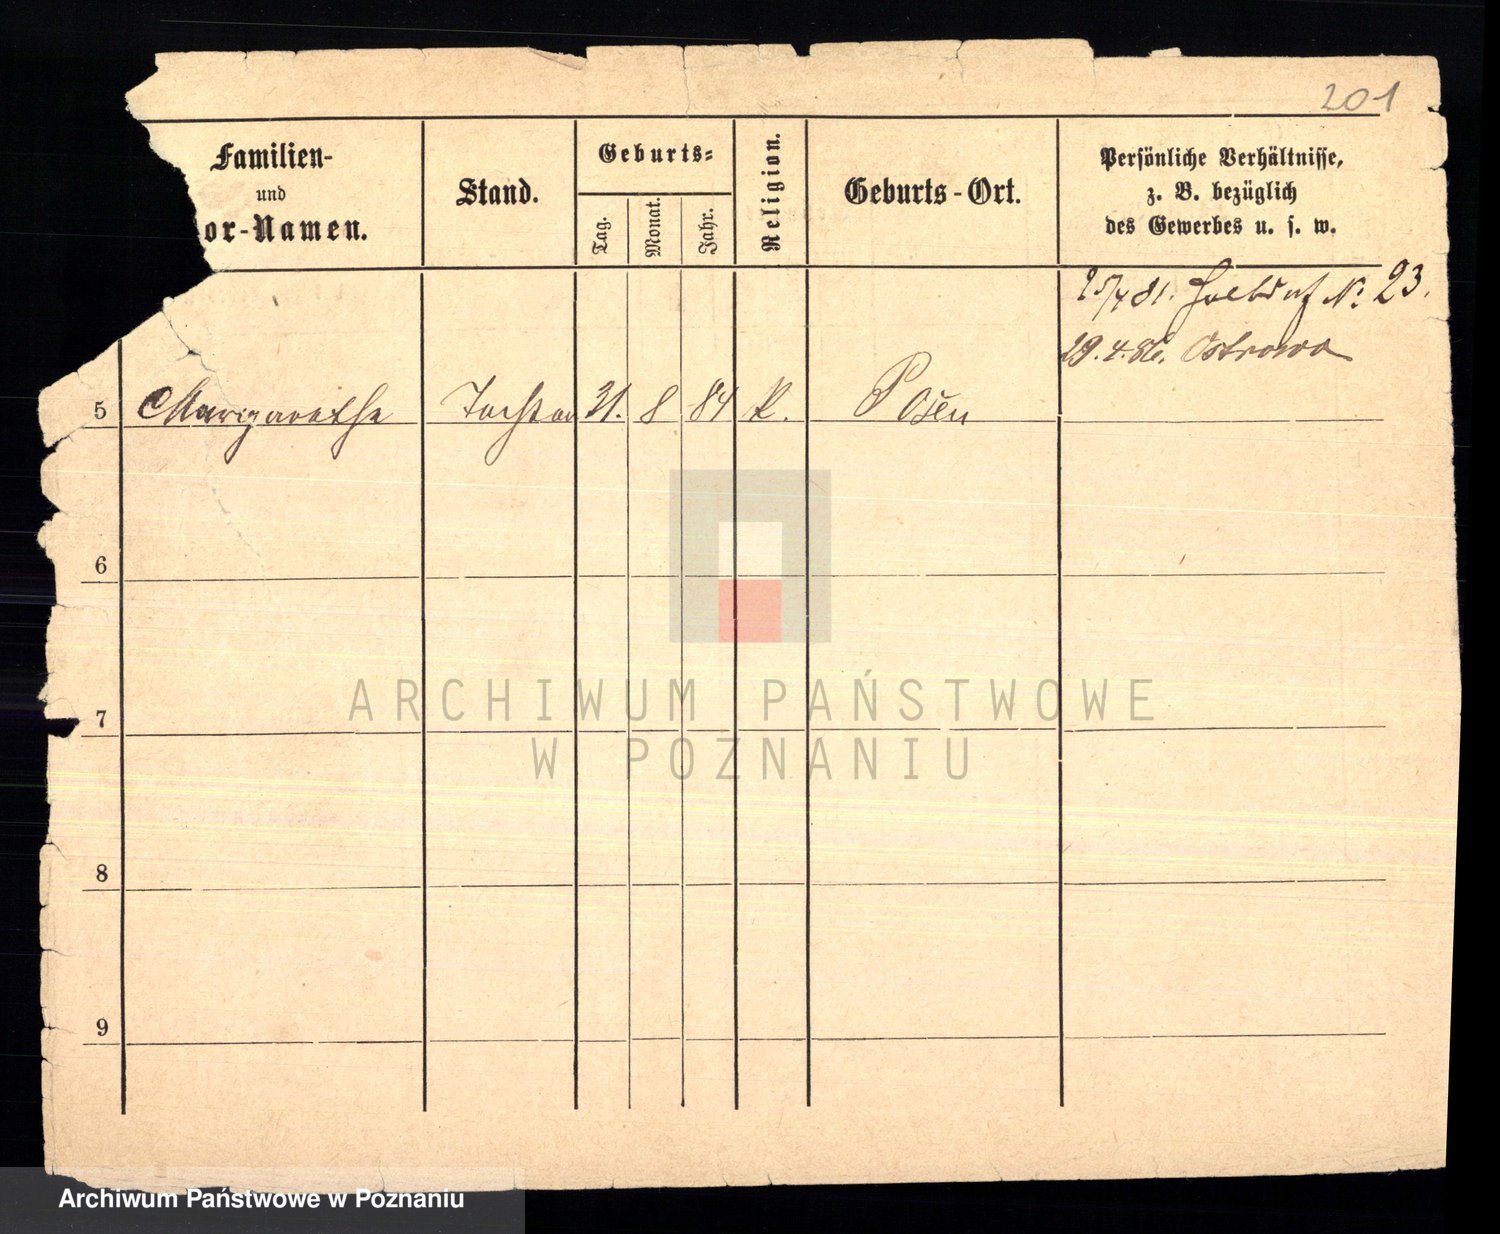 201
Familien-
und
or-Namen.
Stand.
Geburts-
Tag.
Monat.
Jahr.
Religion.
Geburts-Ort.
Persönliche Verhältnisse,
z. B. bezüglich
des Gewerbes u. s. w.
25/4 81. No 23.
29.4.86. Ostrowo
5 Margarethe Tochter 31. 8 84 k. Posen
6
7
8
9
ARCHIWUM PAŃSTWOWE
W POZNANIU
Archiwum Państwowe w Poznaniu